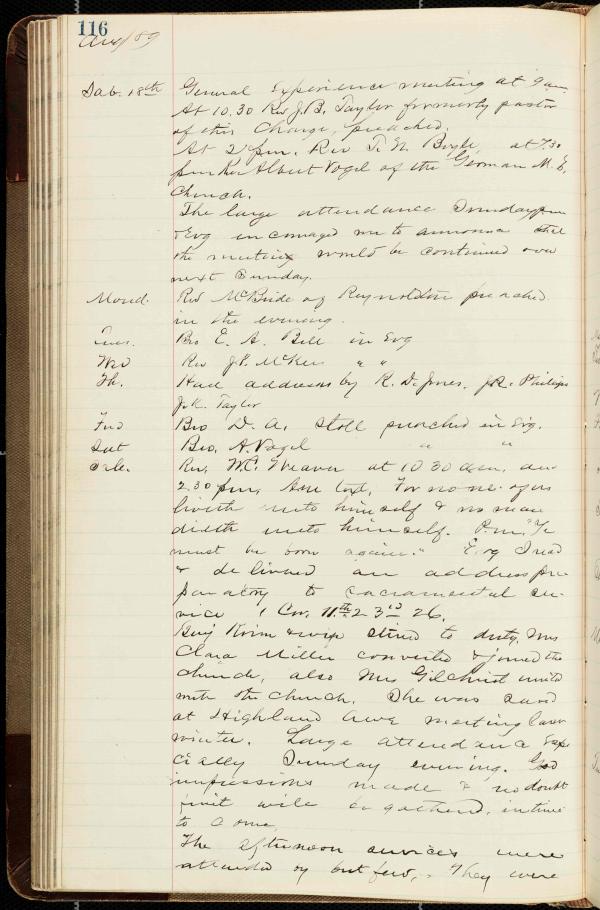 116
Aug/89
Sab. 18th General Experience meeting at 9 am.
At 10.30 Rev J.B. Taylor formerly pastor
of this Charge, preached.
At 2 pm. Rev T. N. Boyle, at 7.30
pm Rev Albert Vogel of the German M. E.
Church.
The large attendance Sunday pm
& Evg encouraged me to announce that
the meeting would be continued over
next Sunday.
Mond. Rev McBride of Reynoldton preached
in the evening.
Tues. Bro E. A. Bell in Evg
Wed Rev J.P. " "
Th. Had addresses by R. D. Jones, Philips
J.K. Taylor
Frid Bro D. A. Stoll preached in Evg.
Sat Bro. A. Vogel " "
Sab. Rev. W.C. Weaver at 10 30 am. and
2.30 pm, text, For none of us
liveth unto himself & no man
dieth unto himself. P.m. "Ye
must be born again." Evg I read
& delivered an address pre
paratory to sacramental ser-
vice 1 Cor. 11th 23rd 26.
Benj & wife to duty. Mrs
Clara Miller converted & joined the
church, also Mrs Gilchrist united
with the church. She was saved
at Highland Ave meeting last
winter. Large attendance espe
cially Sunday evening. Good
impressions made & no doubt
fruit will be gathered, in time
to come.
The afternoon services were
attended by but few, They were